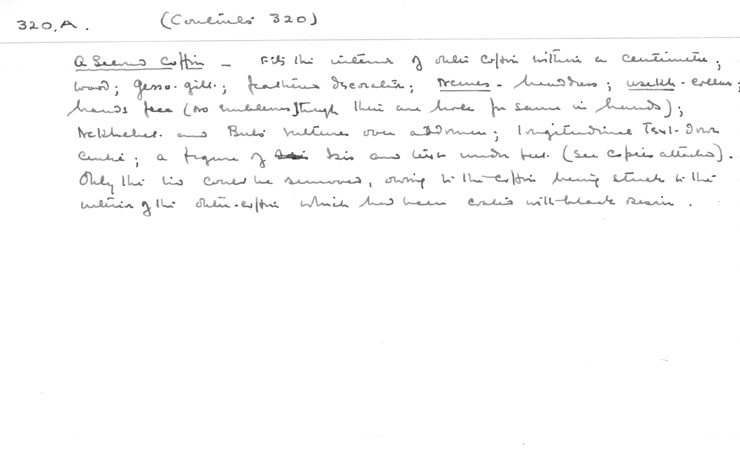 320,A. (Continues 320)
A Second Coffin — Fits the interior of outer coffin within a centimetre;
wood; gesso-gilt; feathered decoration; Nemes - headdress; usekh - collar;
hands free (no emblems, though there are holes for same in hands);
Nekhebet and Buto vultures over abdomen; longitudinal Text-down
centre; a figure of Isis and text under feet. (See copies attached).
Only the lid could be removed, owing to the coffin being stuck to the
interior of the outer-coffin which had been coated with black resin.